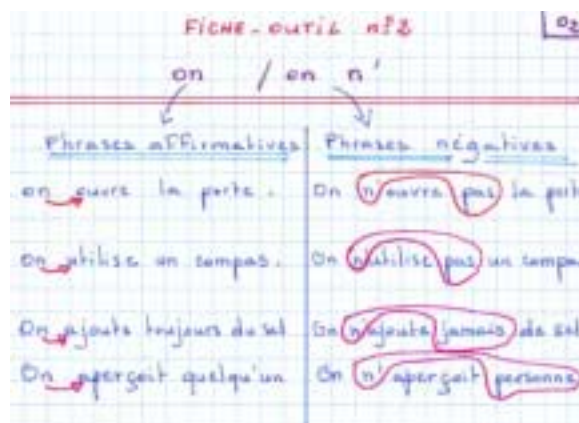 FICHE-OUTIL n°2 02
on / on n'
Phrases affirmatives Phrases négatives
on ouvre la porte. On n'ouvre pas la port
on utilise un compas. On n'utilise pas un compa
On ajoute toujours du sel On n'ajoute jamais de sel
On aperçoit quelqu'un On n'aperçoit personne